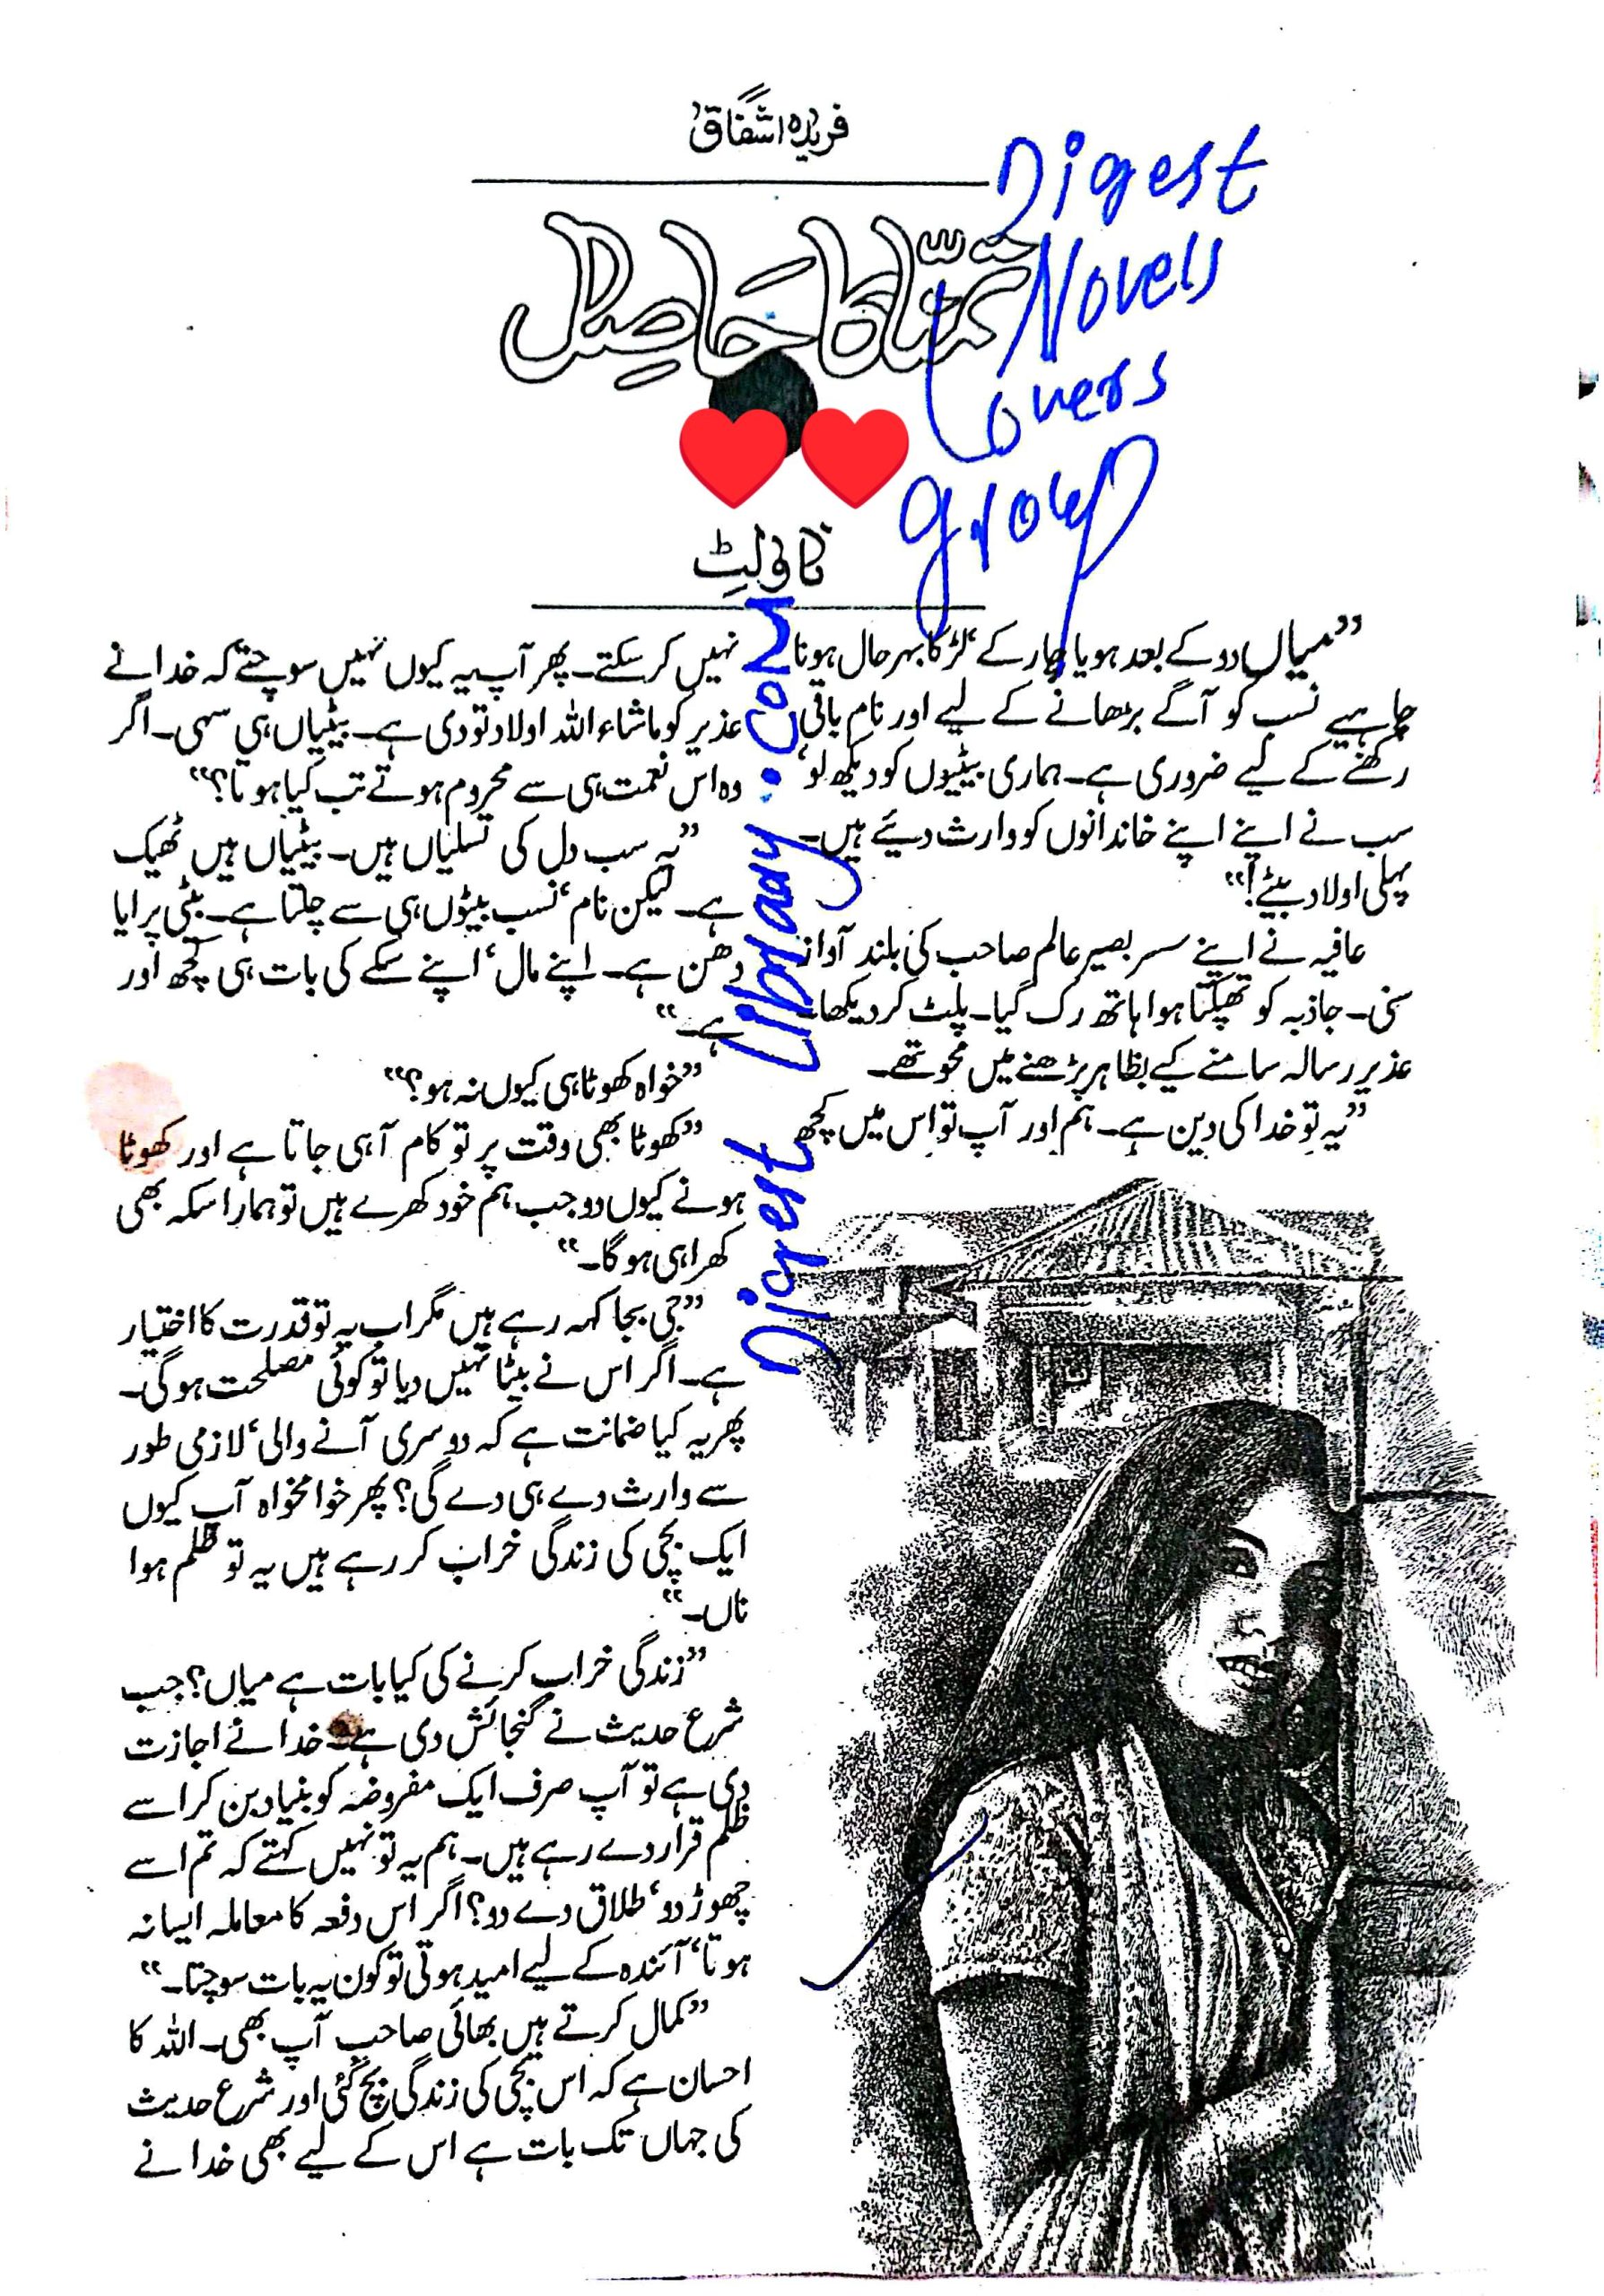 فریدہ اشفاق
تمنّا کا حاصِل
ناولٹ
Digest
Novels
Lovers
group
Digest Library.com
”میاں دو کے بعد ہو یا چار کے‘ لڑکا بہرحال ہونا
چاہیے نسب کو آگے بڑھانے کے لیے اور نام باقی
رکھنے کے لیے ضروری ہے۔ ہماری بیٹیوں کو دیکھ لو‘
سب نے اپنے اپنے خاندانوں کو وارث دیئے ہیں۔
پہلی اولاد بیٹے!“
عافیہ نے اپنے سسر بصیر عالم صاحب کی بلند آواز
سنی۔ جاذبہ کو تھپکتا ہوا ہاتھ رک گیا۔ پلٹ کر دیکھا۔
عذیر رسالہ سامنے کیے بظاہر پڑھنے میں محو تھے۔
”یہ تو خدا کی دین ہے۔ ہم اور آپ تو اس میں کچھ
نہیں کر سکتے۔ پھر آپ یہ کیوں نہیں سوچتے کہ خدا نے
عذیر کو ماشاء اللہ اولاد تو دی ہے۔ بیٹیاں ہی سہی۔ اگر
وہ اس نعمت ہی سے محروم ہوتے تب کیا ہوتا؟“
”یہ سب دل کی تسلیاں ہیں۔ بیٹیاں ہیں ٹھیک
ہے۔ لیکن نام‘ نسب بیٹوں ہی سے چلتا ہے۔ بیٹی پرایا
دھن ہے۔ اپنے مال‘ اپنے سکے کی بات ہی کچھ اور
ہے۔“
”خواہ کھوٹا ہی کیوں نہ ہو؟“
”کھوٹا بھی وقت پر تو کام آ ہی جاتا ہے اور کھوٹا
ہونے کیوں دو جب ہم خود کھرے ہیں تو ہمارا سکہ بھی
کھرا ہی ہو گا۔“
”جی بجا کہہ رہے ہیں مگر اب یہ تو قدرت کا اختیار
ہے۔ اگر اس نے بیٹا نہیں دیا تو کوئی مصلحت ہو گی۔
پھر یہ کیا ضمانت ہے کہ دوسری آنے والی‘ لازمی طور
سے وارث دے ہی دے گی؟ پھر خوامخواہ آپ کیوں
ایک بچی کی زندگی خراب کر رہے ہیں یہ تو ظلم ہوا
ناں۔“
”زندگی خراب کرنے کی کیا بات ہے میاں؟ جب
شرع حدیث نے گنجائش دی ہے۔ خدا نے اجازت
دی ہے تو آپ صرف ایک مفروضہ کو بنیاد بن کر اسے
ظلم قرار دے رہے ہیں۔ ہم یہ تو نہیں کہتے کہ تم اسے
چھوڑ دو‘ طلاق دے دو؟ اگر اس دفعہ کا معاملہ ایسا نہ
ہوتا‘ آئندہ کے لیے امید ہوتی تو کون یہ بات سوچتا۔“
”کمال کرتے ہیں بھائی صاحب آپ بھی۔ اللہ کا
احسان ہے کہ اس بچی کی زندگی بچ گئی اور شرع حدیث
کی جہاں تک بات ہے اس کے لیے بھی خدا نے